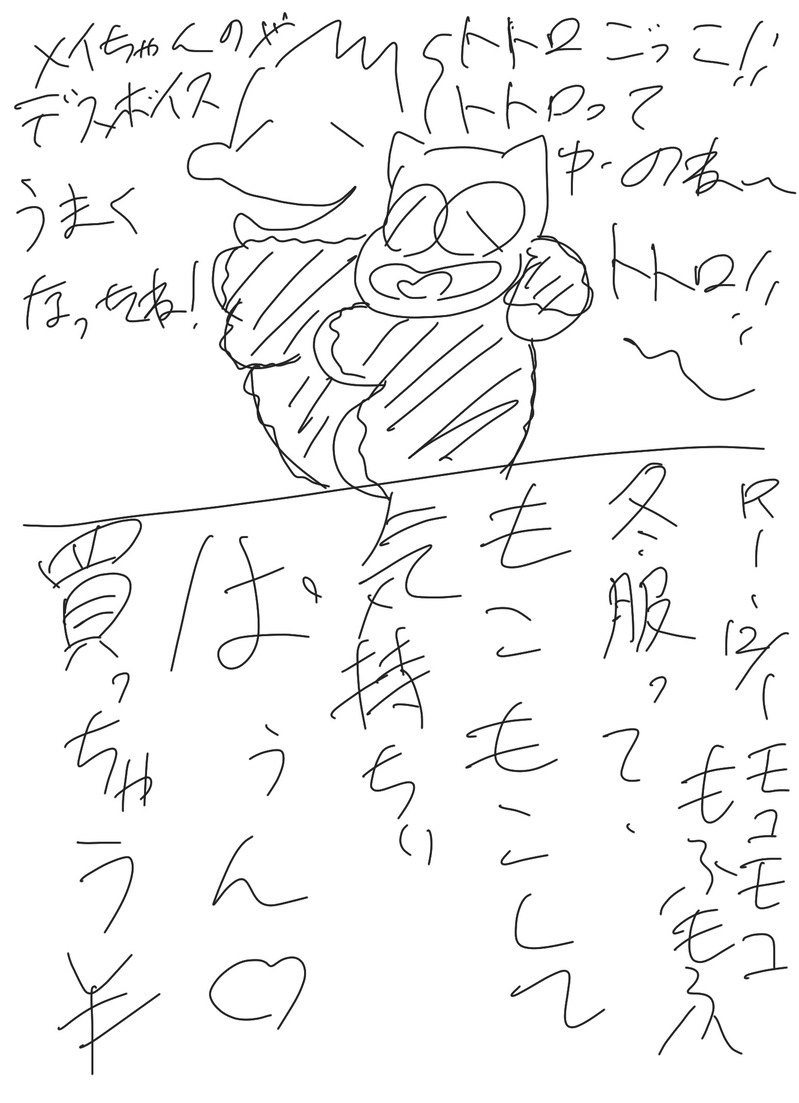 トトロごっこ!!
トトロって
中のね〜
トトロ!!
メイちゃんのが
デスボイス
うまく
なってね!
R1.12/1
モコモコ
もふもふ
冬服って、
もこもこして
気持ち
いい
ばうん♡
買っちゃう¥